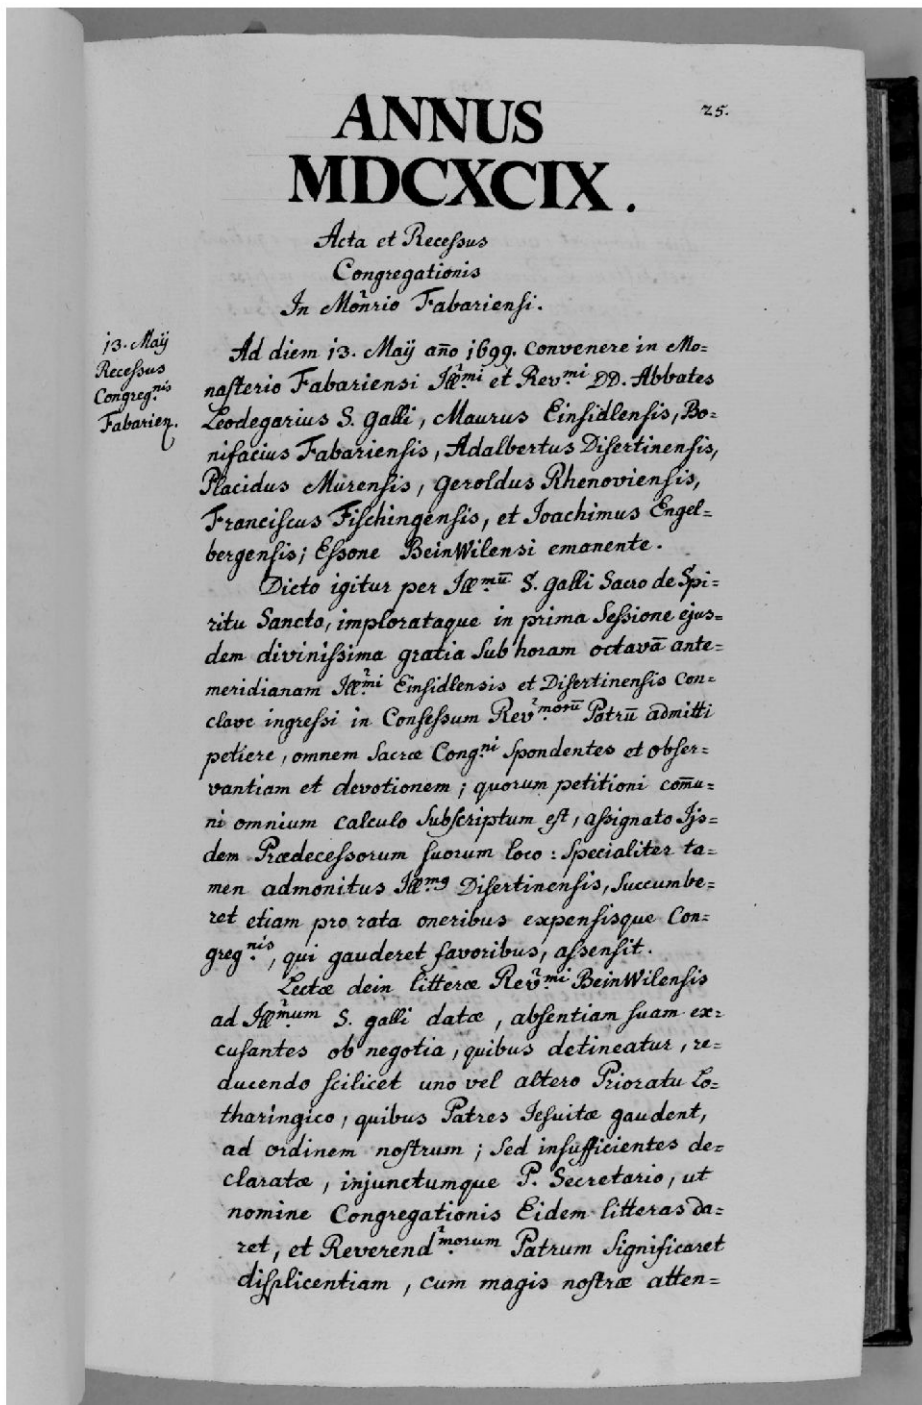 25.
ANNUS
MDCXCIX.
Acta et Recessus
Congregationis
In Monrio Fabariensi.
13. Maÿ
Recessus
Congreg.nis
Fabarien.
Ad diem 13. Maÿ año 1699. convenere in Mo=
nasterio Fabariensi Ill.mi et Rev.mi DD. Abbates
Leodegarius S. Galli, Maurus Einsidlensis, Bo=
nifacius Fabariensis, Adalbertus Disertinensis,
Placidus Murensis, Geroldus Rhenoviensis,
Franciscus Fischingensis, et Joachimus Engel=
bergensis; Essone BeinWilensi emanente.
Dicto igitur per Ill.mū S. Galli Sacro de Spi=
ritu Sancto, implorataque in prima Sessione ejus=
dem divinissima gratia sub horam octavā ante=
meridianam Ill.mi Einsidlensis et Disertinensis con=
clave ingressi in Consessum Rev.morū Patrū admitti
petiere, omnem Sacræ Cong.ni spondentes et obser=
vantiam et devotionem; quorum petitioni com̄u=
ni omnium calculo subscriptum est, assignato Ijs=
dem Prædecessorum suorum loco: specialiter ta=
men admonitus Ill.m9 Disertinensis, succumbe=
ret etiam pro rata oneribus expensisque Con=
greg.nis, qui gauderet favoribus, assensit.
Lectæ dein litteræ Rev.mi BeinWilensis
ad Ill.mum S. Galli datæ, absentiam suam ex=
cusantes ob negotia, quibus detineatur, re=
ducendo scilicet uno vel altero Prioratu Lo=
tharingico, quibus Patres Jesuitæ gaudent,
ad ordinem nostrum; sed insufficientes de=
claratæ, injunctumque P. Secretario, ut
nomine Congregationis Eidem litteras da=
ret, et Reverend.morum Patrum significaret
displicentiam, cum magis nostræ atten=